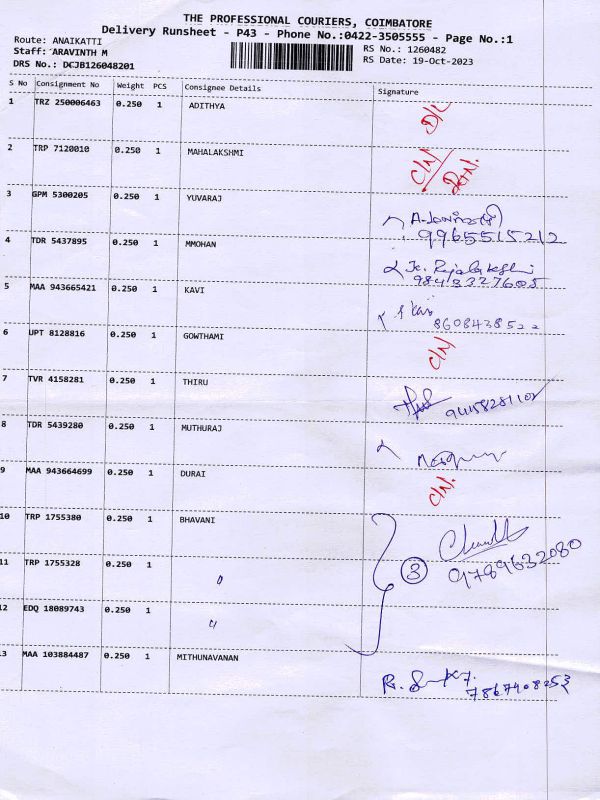 THE PROFESSIONAL COURIERS, COIMBATORE
Delivery Runsheet - P43 - Phone No.:0422-3505555 - Page No.:1
Route: ANAIKATTI
Staff: ARAVINTH M
RS No.: 1260482
DRS No.: DCJB126048201
RS Date: 19-Oct-2023
S No Consignment No Weight PCS Consignee Details Signature
1 TRZ 250006463 0.250 1 ADITHYA D/L
2 TRP 7120010 0.250 1 MAHALAKSHMI C/N/
3 GPM 5300205 0.250 1 YUVARAJ
9965515212
4 TDR 5437895 0.250 1 MMOHAN
9843327605
5 MAA 943665421 0.250 1 KAVI
8608438522
6 UPT 8128816 0.250 1 GOWTHAMI C/N
7 TVR 4158281 0.250 1 THIRU
8 TDR 5439280 0.250 1 MUTHURAJ
9 MAA 943664699 0.250 1 DURAI C/N.
10 TRP 1755380 0.250 1 BHAVANI
11 TRP 1755328 0.250 1 3 9789632080
12 EDQ 18089743 0.250 1
13 MAA 103884487 0.250 1 MITHUNAVANAN
7867408253